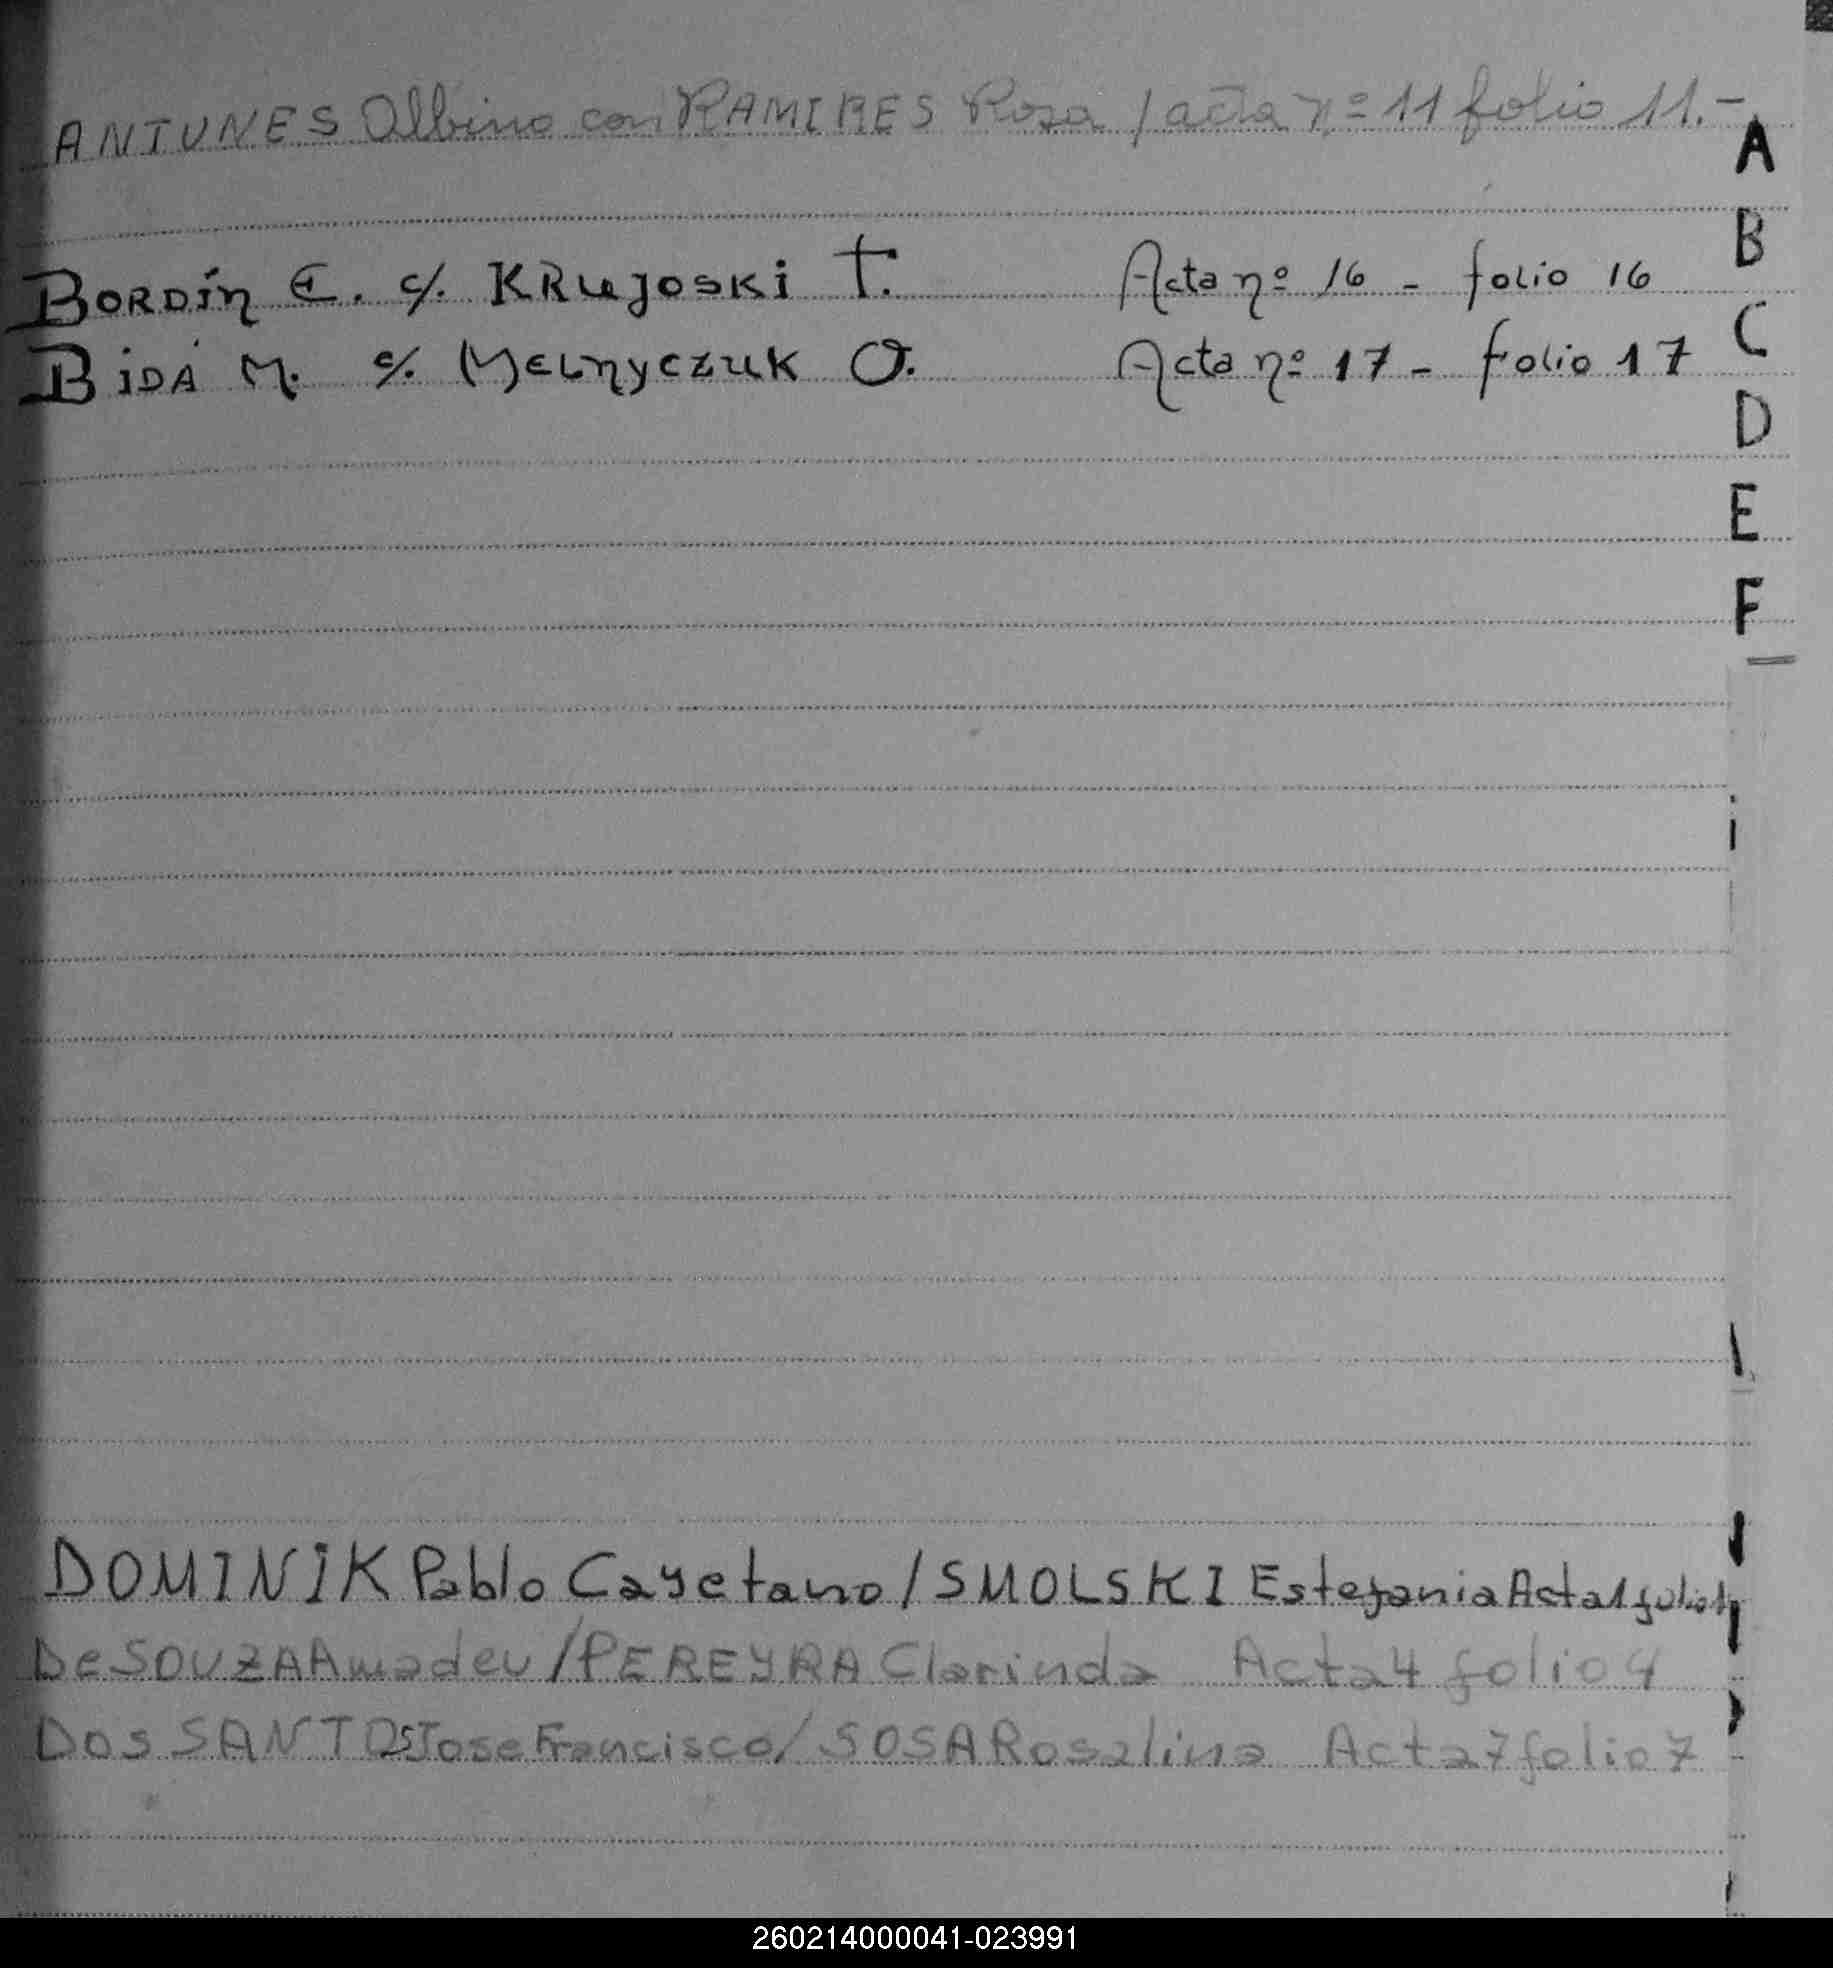 ANTUNES Albino con RAMIRES Rosa / acta nº 11 folio 11.-
A
B
BORDÍN E. c/. KRUJOSKI T. Acta nº 16 - folio 16
C
BIDÁ M. c/. MELNYCZUK O. Acta nº 17 - folio 17
D
E
F
DOMINIK Pablo Cayetano / SMOLSKI Estefania Acta 1 folio 1
De SOUZA Amadeu / PEREYRA Clarinda Acta 4 folio 4
Dos SANTOS Jose Francisco / SOSA Rosalina Acta 7 folio 7
260214000041-023991